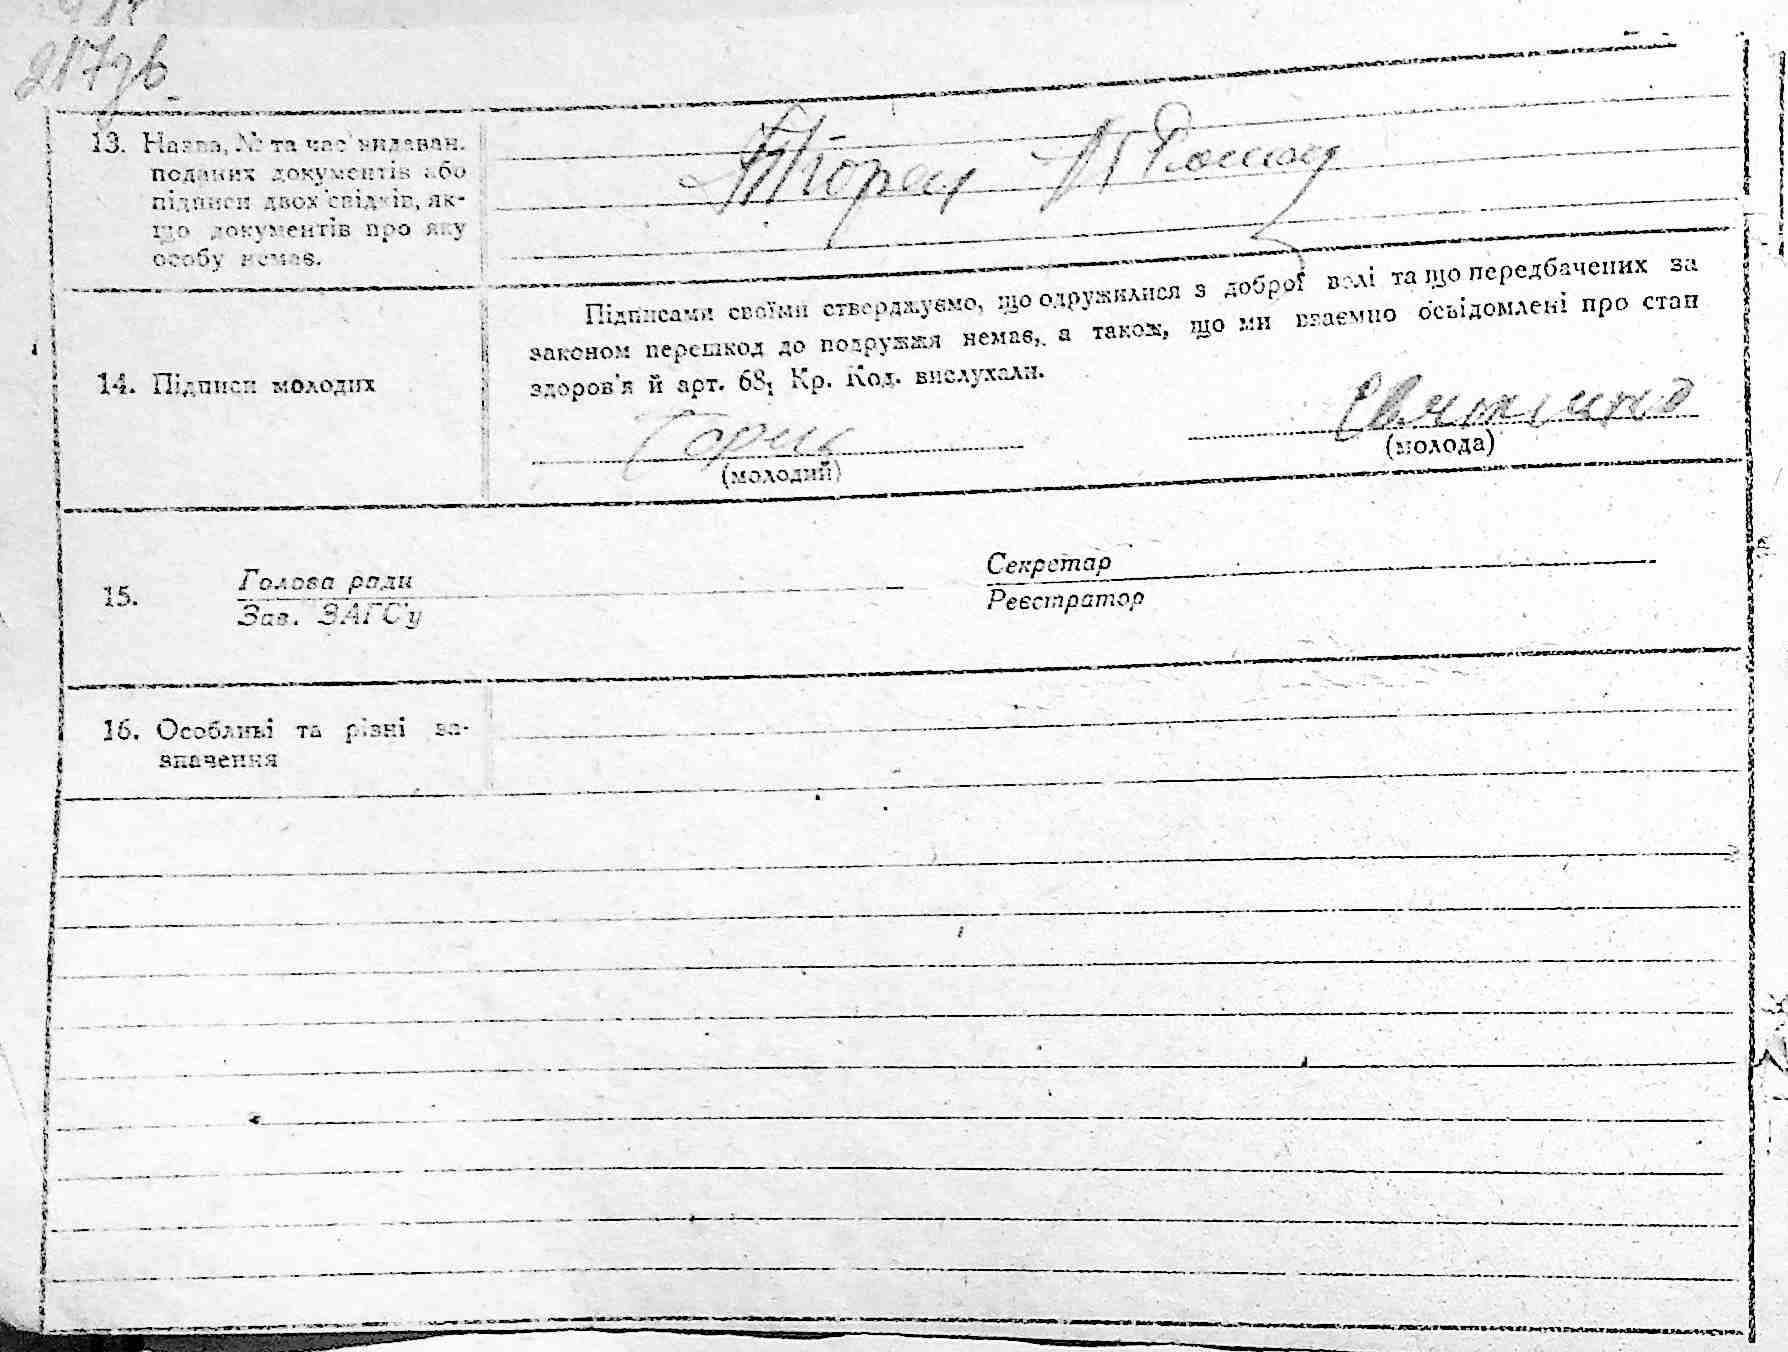 217зв
13. Назва, № та час видаван.
поданих документів або
підписи двох свідків, як-
що документів про яку
особу немає.
14. Підписи молодих
Підписами своїми стверджуємо, що одружилися з доброї волі та що передбачених за
законом перешкод до подружжя немає, а також, що ми взаємно освідомлені про стан
здоров'я й арт. 68, Кр. Код. вислухали.
(молодий)
(молода)
15.
Голова ради
Зав. ЗАГС'у
Секретар
Реєстратор
16. Особливі та різні за-
значення